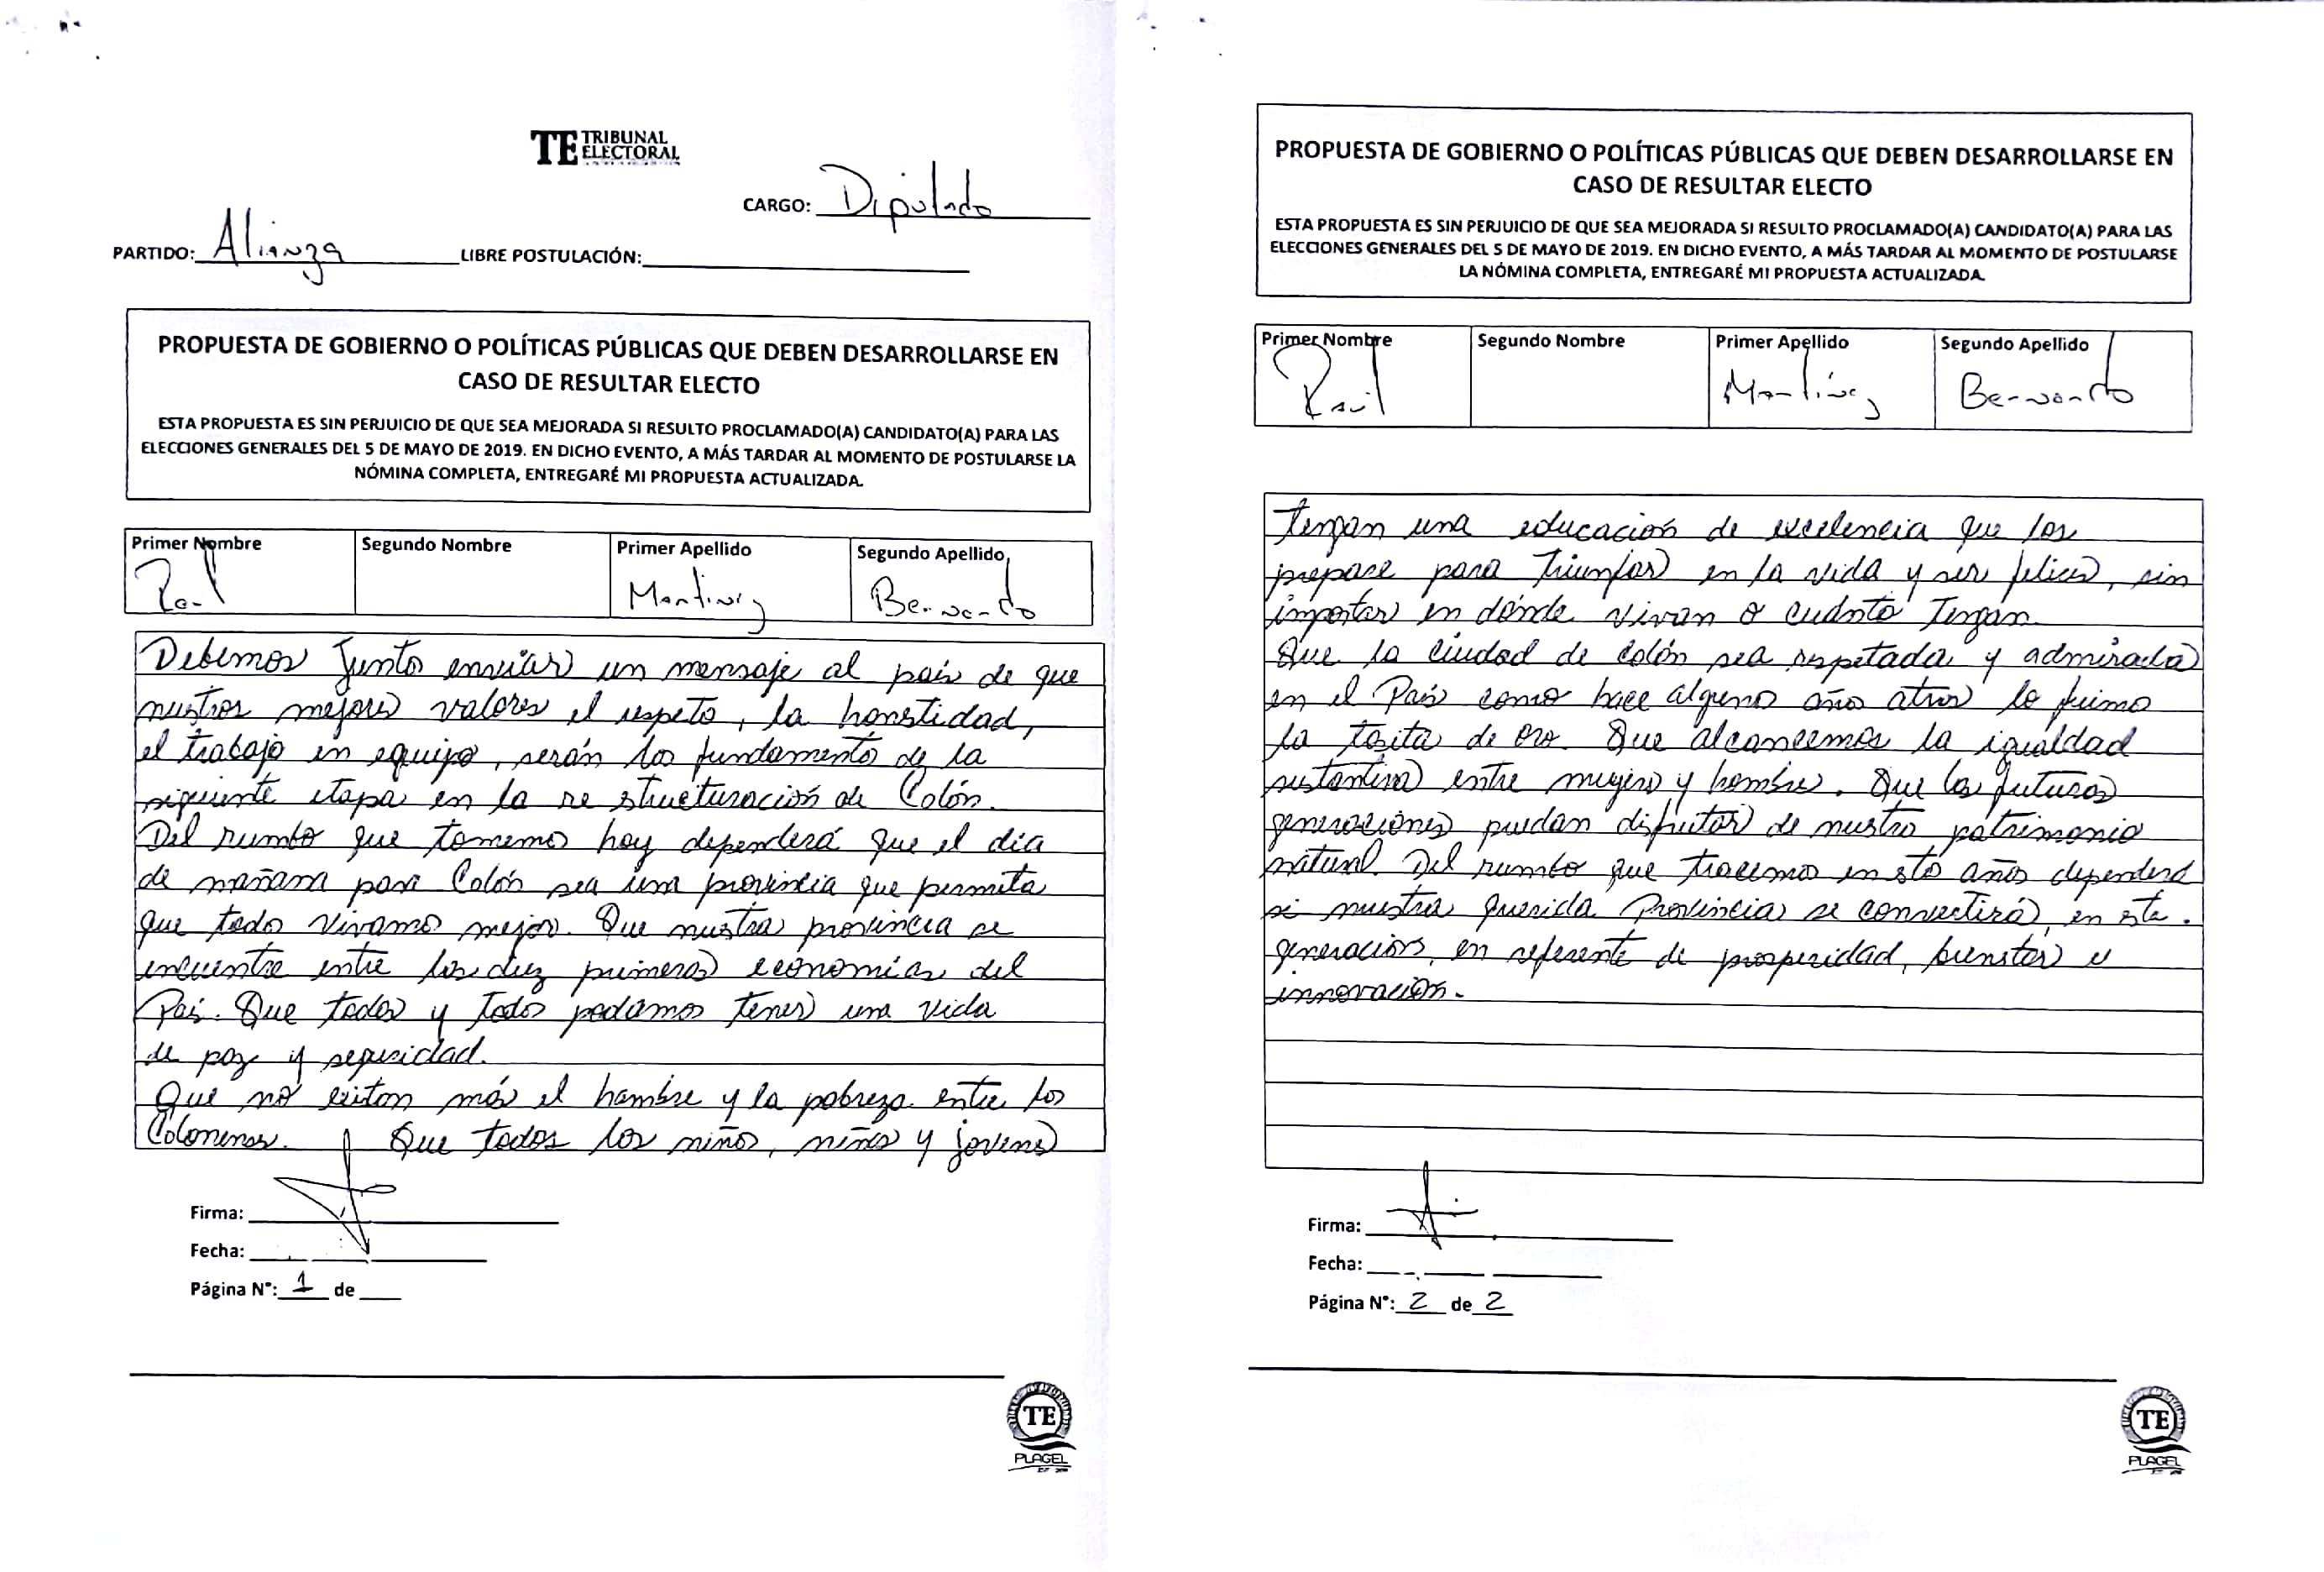 TE TRIBUNAL
ELECTORAL
CARGO: Diputado
PARTIDO: Alianza LIBRE POSTULACIÓN:
PROPUESTA DE GOBIERNO O POLÍTICAS PÚBLICAS QUE DEBEN DESARROLLARSE EN
CASO DE RESULTAR ELECTO
ESTA PROPUESTA ES SIN PERJUICIO DE QUE SEA MEJORADA SI RESULTO PROCLAMADO(A) CANDIDATO(A) PARA LAS
ELECCIONES GENERALES DEL 5 DE MAYO DE 2019. EN DICHO EVENTO, A MÁS TARDAR AL MOMENTO DE POSTULARSE LA
NÓMINA COMPLETA, ENTREGARÉ MI PROPUESTA ACTUALIZADA.
Primer Nombre Segundo Nombre Primer Apellido Segundo Apellido
Raul Martinez Bernardo
Debemos Junto enviar un mensaje al país de que
nuestros mejores valores el respeto, la honestidad,
el trabajo en equipo, serán los fundamento de la
siguiente etapa en la re structuración de Colón.
Del rumbo que tomemo hoy dependerá que el día
de mañana para Colón sea una provincia que permita
que todo vivamo mejor. Que nuestra provincia se
encuentre entre los diez primeras economías del
País. Que todas y todos podamos tener una vida
de paz y seguridad.
Que no existan más el hambre y la pobreza entre los
Colonenses. Que todos los niños, niñas y jovenes
Firma:
Fecha:
Página N°: 1 de
TE
PLAGEL
PROPUESTA DE GOBIERNO O POLÍTICAS PÚBLICAS QUE DEBEN DESARROLLARSE EN
CASO DE RESULTAR ELECTO
ESTA PROPUESTA ES SIN PERJUICIO DE QUE SEA MEJORADA SI RESULTO PROCLAMADO(A) CANDIDATO(A) PARA LAS
ELECCIONES GENERALES DEL 5 DE MAYO DE 2019. EN DICHO EVENTO, A MÁS TARDAR AL MOMENTO DE POSTULARSE
LA NÓMINA COMPLETA, ENTREGARÉ MI PROPUESTA ACTUALIZADA.
Primer Nombre Segundo Nombre Primer Apellido Segundo Apellido
Raúl Martínez Bernardo
tengan una educación de excelencia que los
prepare para Triunfar en la vida y ser felices, sin
importar en dónde vivan o cuánto Tengan.
Que la ciudad de Colón sea respetada y admirada
en el País como hace alguno año atras lo fuimo
la tasita de oro. Que alcancemos la igualdad
sustantiva entre mujeres y hombres. Que las futuras
generaciones puedan disfrutar de nuestro patrimonio
natural. Del rumbo que tracemos en sto años dependerá
si nuestra querida Provincia se convertirá, en este.
generación, en referente de prosperidad, bienstar e
innovación.
Firma:
Fecha:
Página N°: 2 de 2
TE
PLAGEL